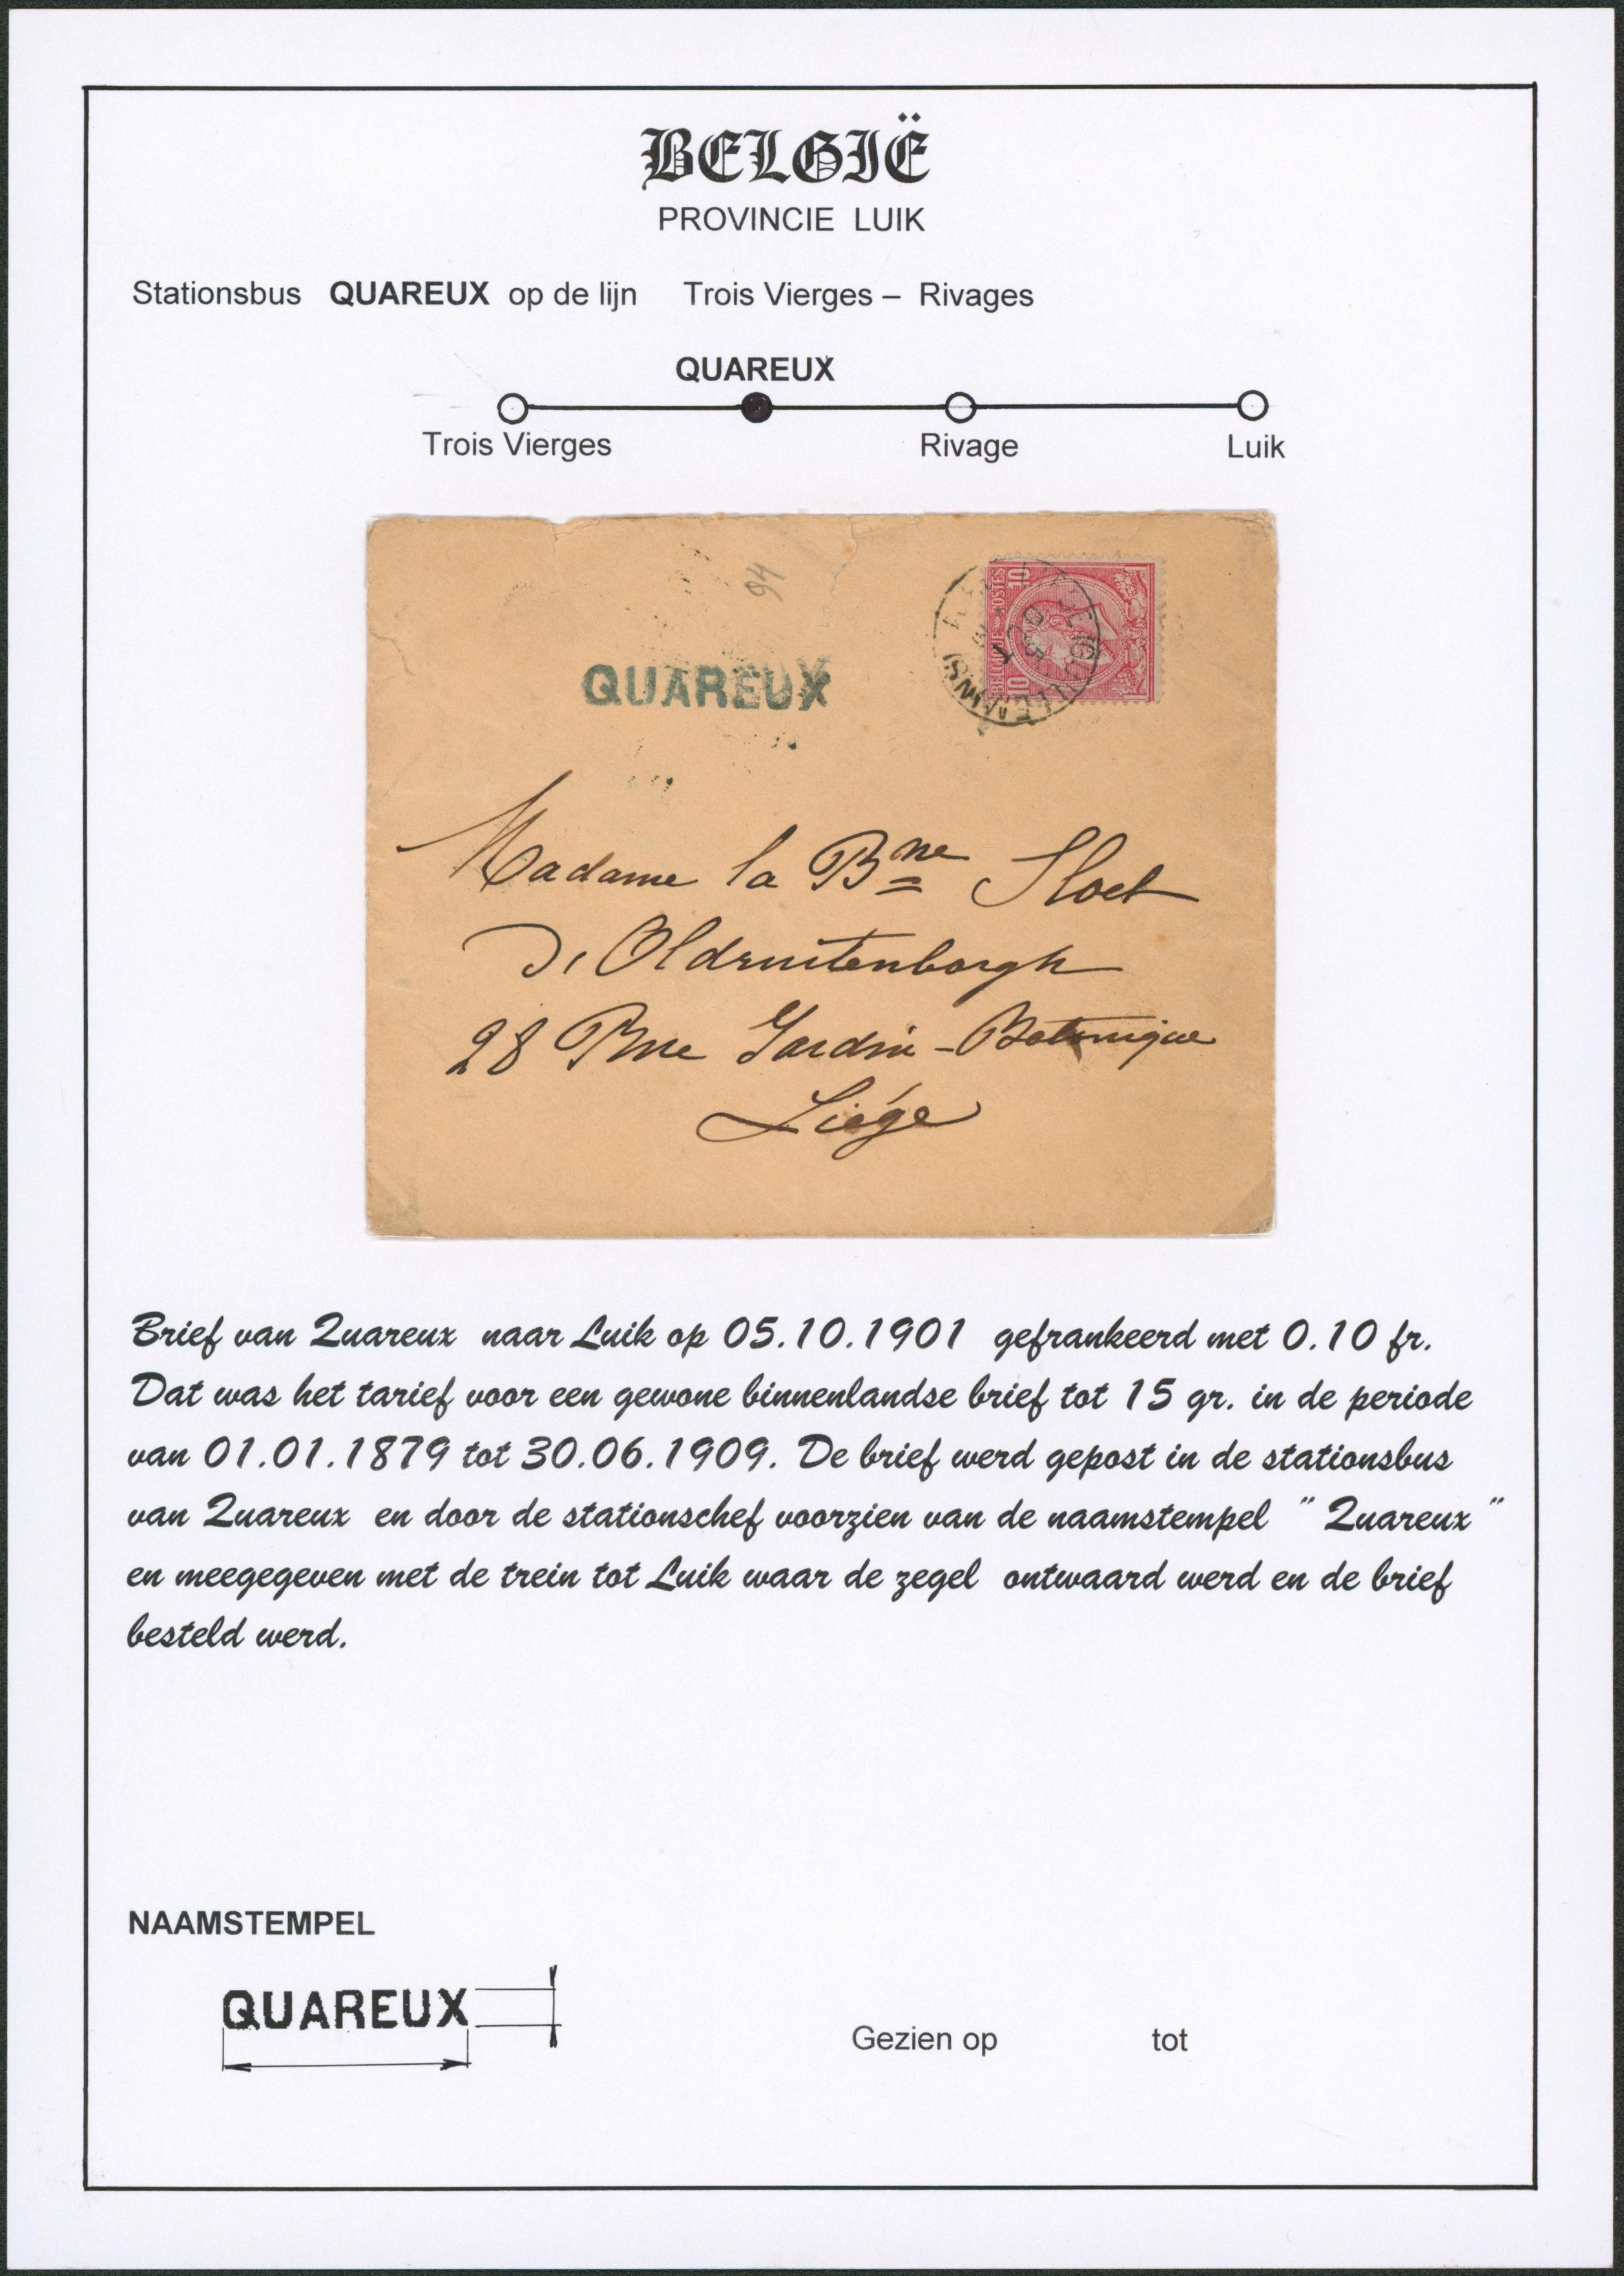 BELGIË
PROVINCIE LUIK
Stationsbus QUAREUX op de lijn Trois Vierges – Rivages
QUAREUX
Trois Vierges Rivage Luik
94
QUAREUX
BELGIQUE POSTES
10 10
(GUILLEMINS)
5 OCT
Madame la Bne Sloet
d'Oldruitenborgh
28 Rue Jardin-Botanique
Liége
Brief van Quareux naar Luik op 05.10.1901 gefrankeerd met 0.10 fr.
Dat was het tarief voor een gewone binnenlandse brief tot 15 gr. in de periode
van 01.01.1879 tot 30.06.1909. De brief werd gepost in de stationsbus
van Quareux en door de stationschef voorzien van de naamstempel " Quareux "
en meegegeven met de trein tot Luik waar de zegel ontwaard werd en de brief
besteld werd.
NAAMSTEMPEL
QUAREUX
Gezien op tot